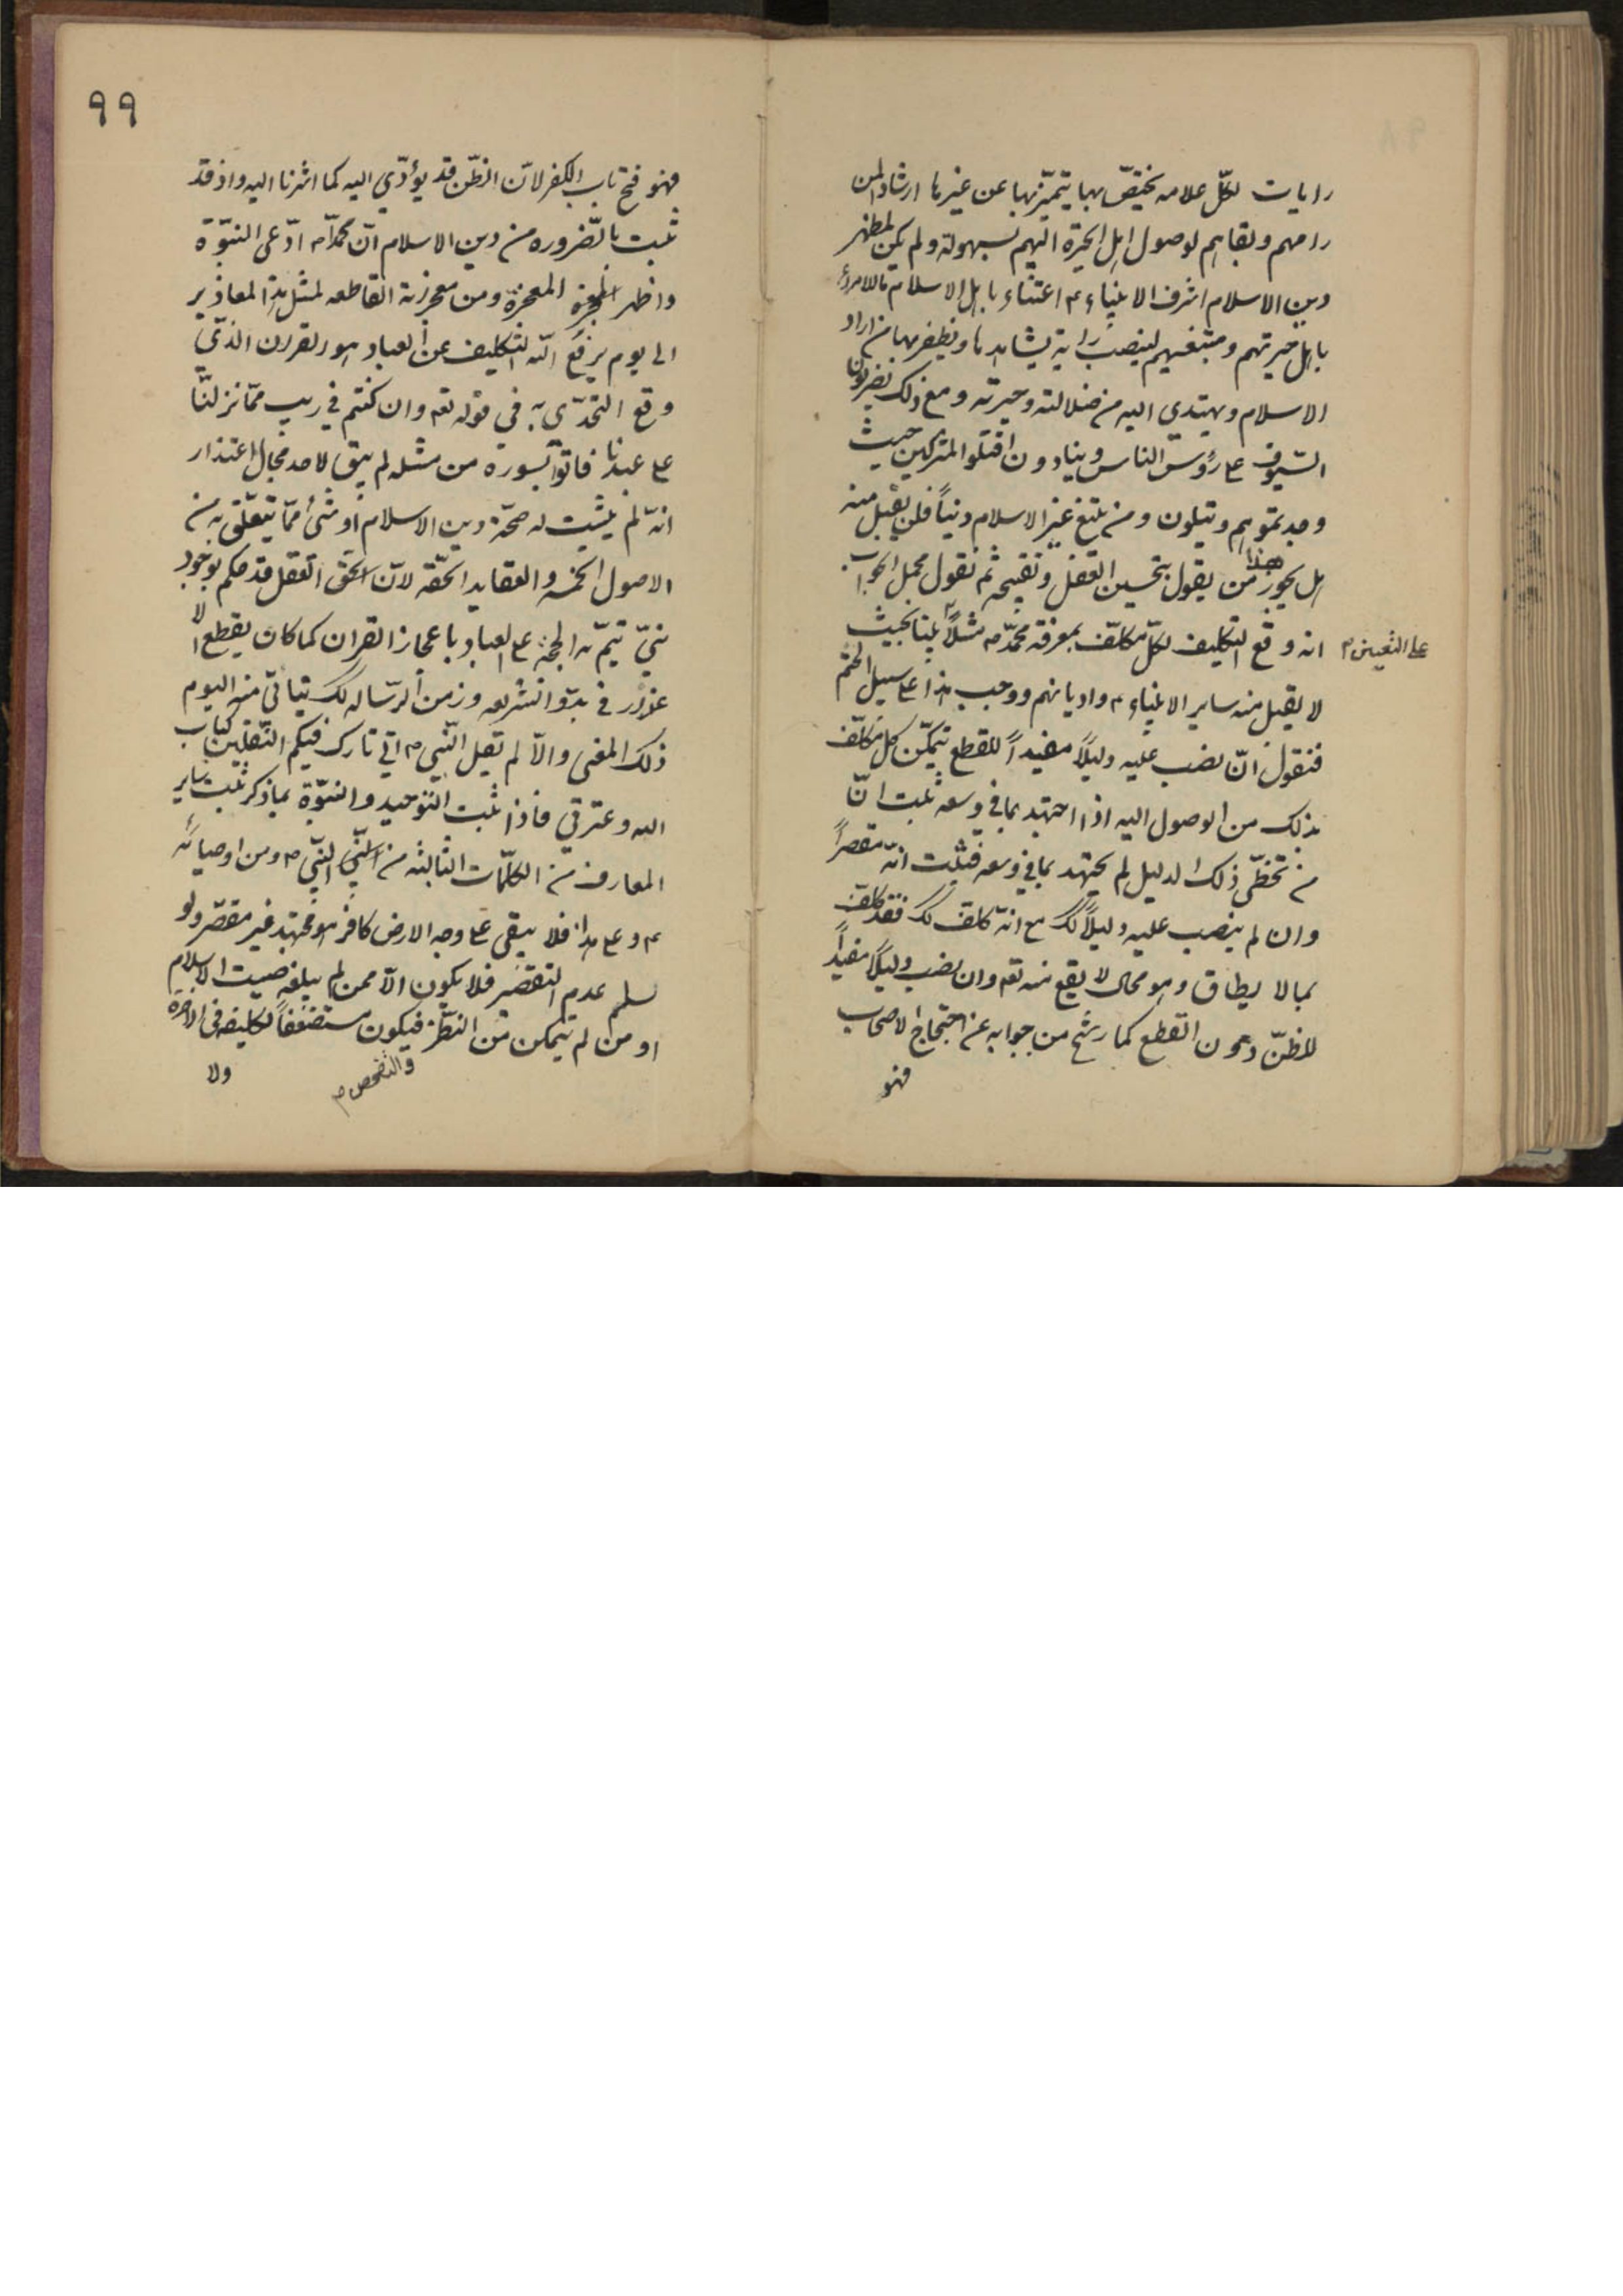 رايات لكلّ علامه يختصّ بها يتميّز بها عن غيرها ارشاداً لمن
رامهم وبقاهم لوصول اهل الحيرة اليهم بسهولة ولم يكن لمظهر
دين الاسلام اشرف الانبياء ع اعتناء باهل الاسلام
باهل حيرتهم ومتبعيهم لينصب راية يشاهدها ويظفر بها من اراد
الاسلام ويهتدى اليه من ضلالته وحيرته ومع ذلك يضربون
السّيوف ع رؤس الناس وينادون اقتلوا المشركين حيث
وجدتموهم ويتلون ومن يبتغ غير الاسلام ديناً فلن يقبل منه
هل يجوز هذا من يقول بتحسين العقل وتقبيحه ثم نقول مجمل الجواب
انه وقع التكليف لكلّ مكلّف بمعرفة محمّد ص مثلاً نبيّا بحيث
على التعيين م
لا يقبل منه ساير الانبياء ع واديانهم ووجب هذا ع سبيل الحتم
فنقول انّ نصب عليه دليلاً مفيداً للقطع يتمكّن كل مكلّف
بذلك من الوصول اليه اذا اجتهد بما في وسعه ثبت انّ
من تخطّى ذلك الدليل لم يجتهد بما في وسعه فثبت انّه مقصراً
وان لم ينصب عليه دليلاً كك مع انّه كلف كك فقد كلف
بما لا يطاق وهو محال لا يقع منه تعه وان نصب دليلاً مفيداً
للظنّ دون القطع كما رشح من جوابه عن احتجاج الاصحاب
فهو
٩٩
فهو فتح باب الكفر لانّ الظّن قد يؤدّي اليه كما اشرنا اليه واذ قد
ثبت بالضّروره من دين الاسلام انّ محمّداً ص ادّعى النبوّة
واظهر المعجزة ومن معجزته القاطعه لمثل هذا المعاذير
الى يوم يرفع الله التكليف عن العباد هو القران الذّي
وقع التحدّى به في قوله تعه وان كنتم في ريب ممّا نزلنّا
ع عبدنا فاتوا بسورة من مثله لم يبق لاحد مجال اعتذار
انّه لم يثبت له صحّة دين الاسلام او شئ ممّا يتعلّق به من
الاصول الخمسه والعقايد الحقّه لانّ الحقّ العقل قد حكم بوجود
نبيّ تتمّ به الحجّة ع العباد باعجاز القران كما كان يقطع الا
عذار في بدوّ الشريعه وزمن الرّساله كك يتاتّي منه اليوم
ذلك المعنى والاّ لم تقل النّبي ص انّي تارك فيكم الثقلين كتاب
الله وعترتي فاذا ثبت التوحيد والنبوّة بما ذكر ثبت ساير
المعارف من الكلمات الثابته من النّبي ص ومن اوصيائه
ع وع هذا فلا يبقى ع وجه الارض كافر هو مجتهد غير مقصّر ولو
سلم عدم التقصير فلا يكون الاّ ممن لم يبلغه صيت الاسلام
او من لم يتمكن من النظّر فيكون مستضعفاً تكليفه في الاخره
والتفحص م
ولا